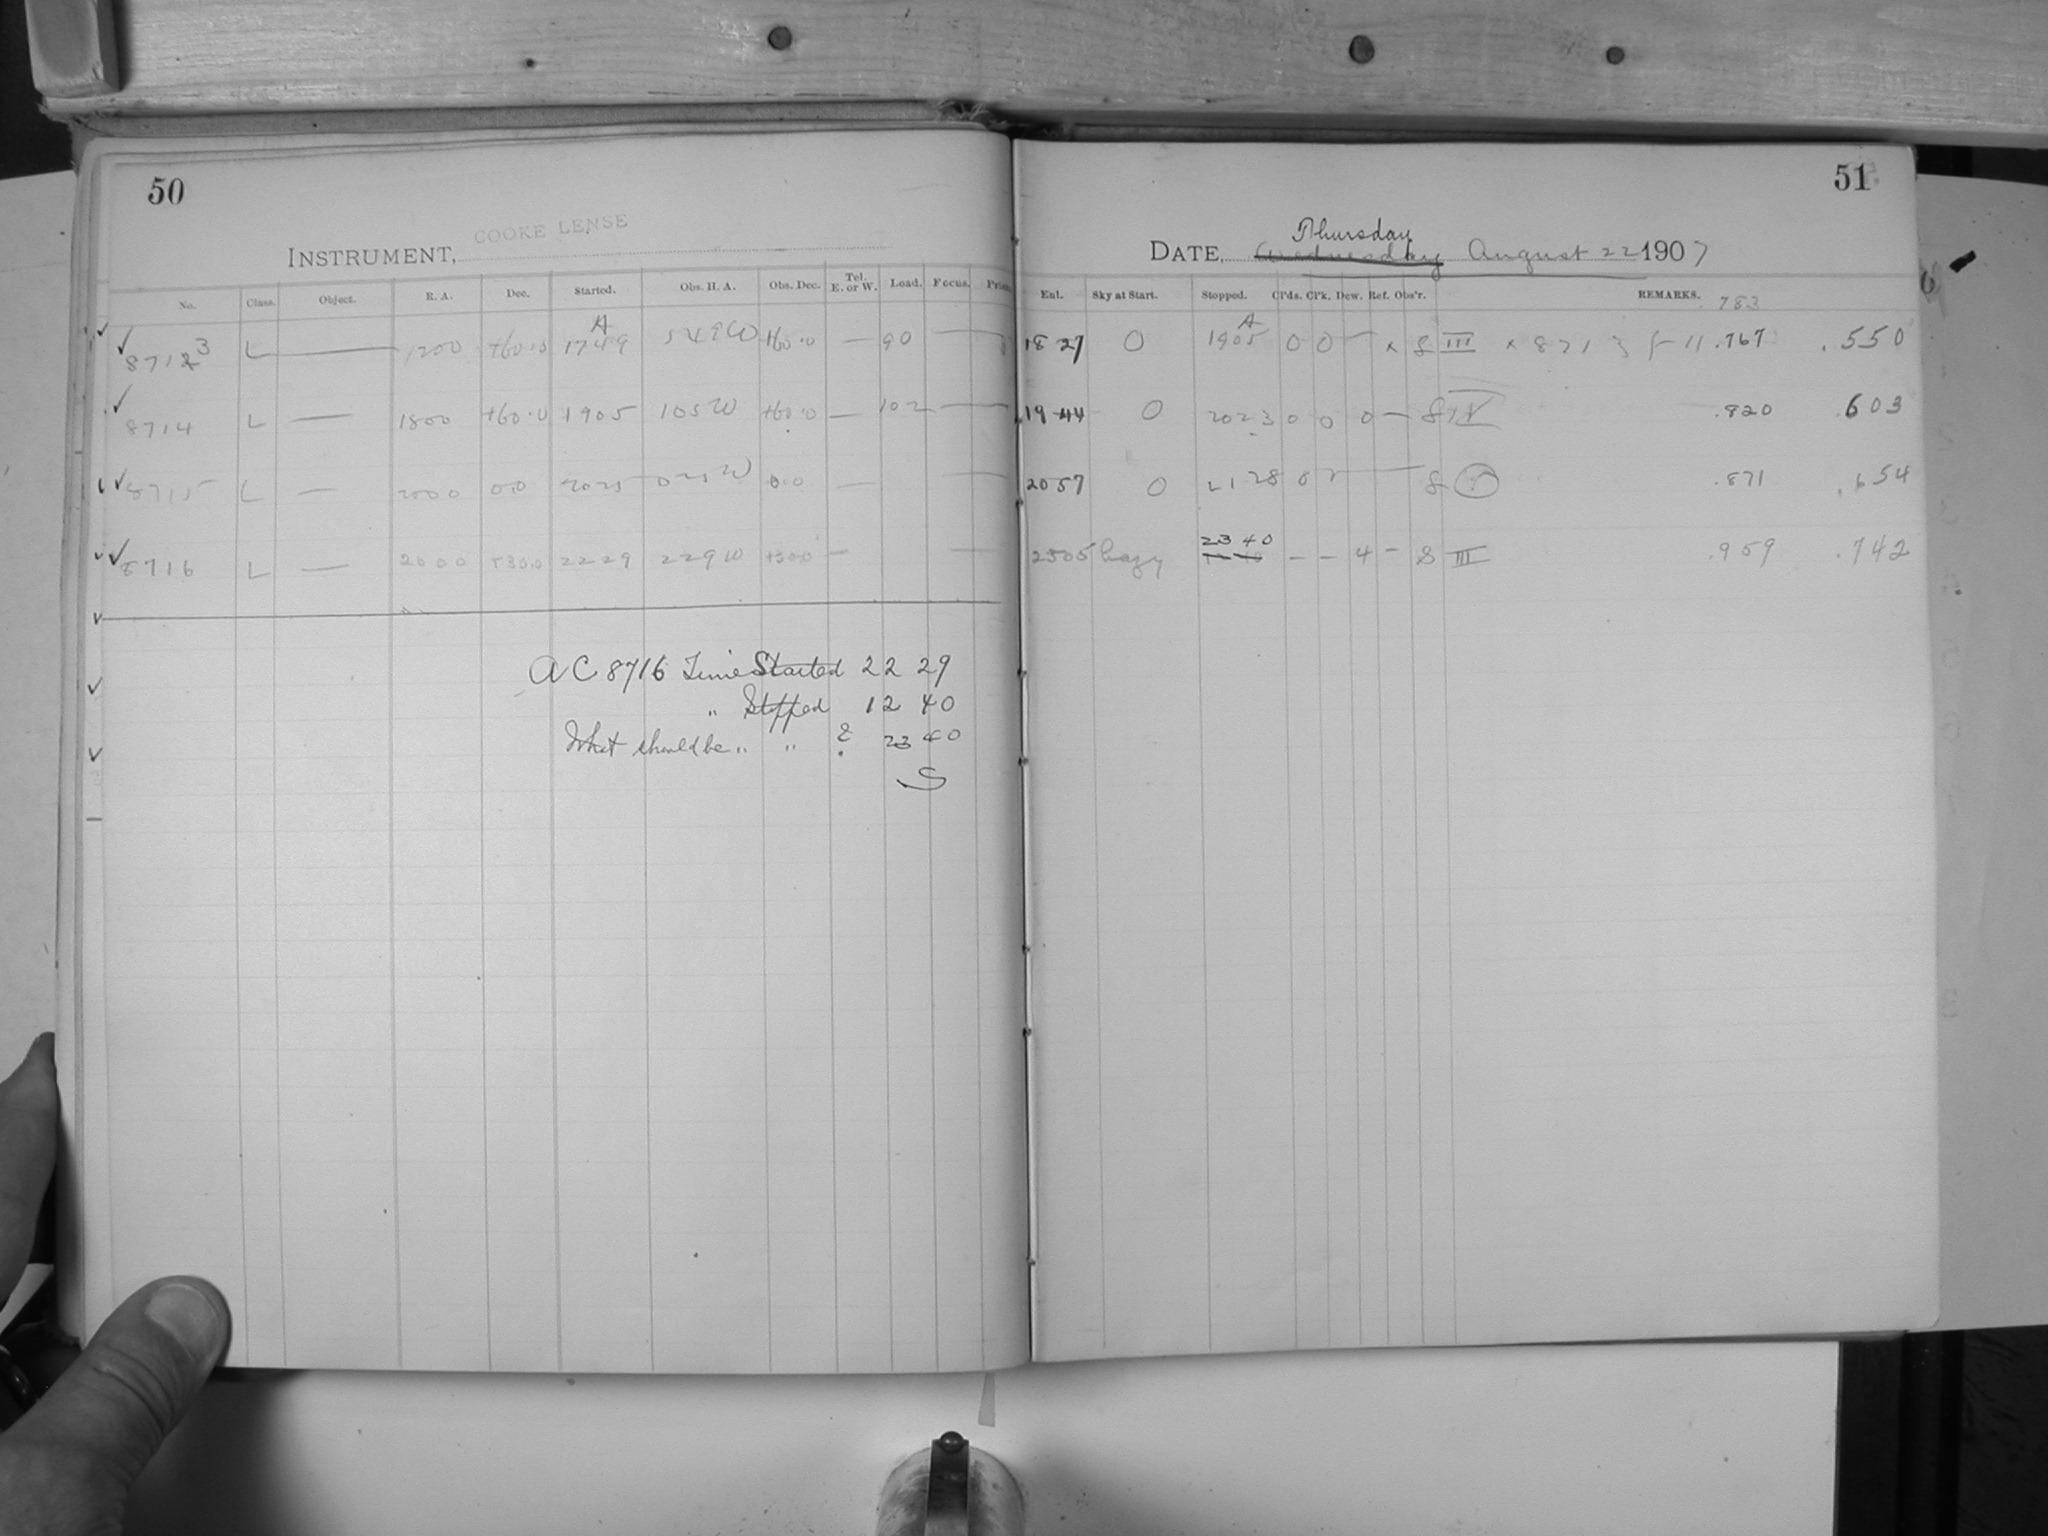 50
INSTRUMENT, COOKE LENSE
No. Class. Object. R. A. Dec. Started. Obs. H. A. Obs. Dec. Tel. E. or W. Load. Focus.
A
8713 L — 1200 +60.0 1749 549W +60.0 — 90 —
8714 L — 1800 +60.0 1905 105W +60.0 — 102 —
8715 L — 2000 0.0 2025 025W 0.0 — —
8716 L — 2000 +30.0 2229 229W +30.0 — —
AC 8716 Time Started 22 29
" Stopped 12 40
What should be " " ? 23 40
S
51
Thursday
DATE, Wednesday August 22 1907
Ent. Sky at Start. Stopped. Cl'ds. Cl'k. Dew. Ref. Obs'r. REMARKS.
783
A
18 27 0 1905 0 0 — × S III × 8713 .767 .550
19 44 0 2023 0 0 0 — S IV .820 .603
2057 0 2128 0 — S .871 .654
23 40
2305 hazy — — 4 – S III .959 .742